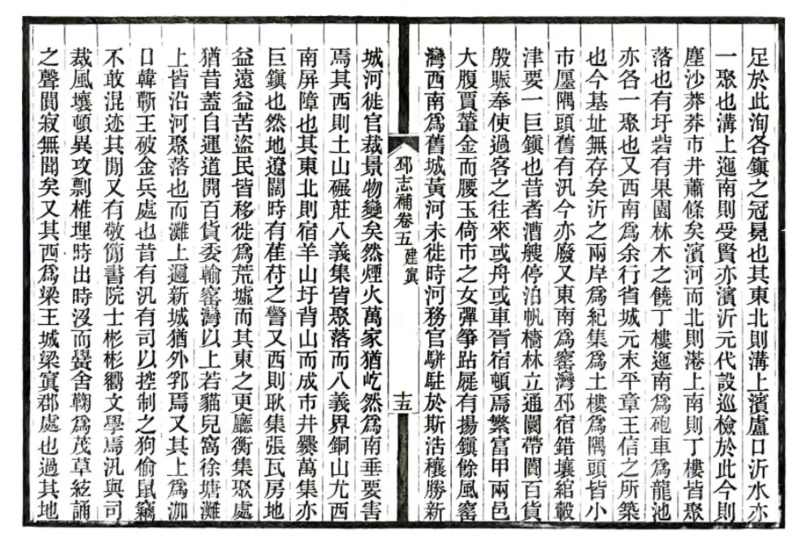 足於此洵各鎮之冠冕也其東北則溝上濱盧口沂水亦
一聚也溝上迤南則受賢亦濱沂元代設巡檢於此今則
塵沙莽莽市井蕭條矣濱河而北則港上南則丁樓皆聚
落也有圩砦有果園林木之饒丁樓迤南爲砲車爲龍池
亦各一聚也又西南爲余行省城元末平章王信之所築
也今基址無存矣沂之兩岸爲紀集爲土樓爲隅頭皆小
市廛隅頭舊有汛今亦廢又東南爲窰灣邳宿錯壤綰轂
津要一巨鎮也昔者漕艘停泊帆檣林立通闤帶闠百貨
殷賑奉使過客之往來或舟或車胥宿頓焉繁富甲兩邑
大腹賈輦金而腰玉倚市之女彈箏跕屣有揚鎮餘風窰
灣西南爲舊城黃河未徙時河務官駢駐於斯浩穰勝新
邳志補卷五 建寘
十五
城河徙官裁景物變矣然煙火萬家猶屹然爲南垂要害
焉其西則土山碾莊八義集皆聚落而八義界銅山尤西
南屏障也其東北則宿羊山圩背山而成市井爨萬集亦
巨鎮也然地遼闊時有萑苻之警又西則耿集張瓦房地
益遠益苦盜民皆移徙爲荒墟而其東之更廳衡集聚處
猶昔蓋自運道開百貨委輸窰灣以上若貓兒窩徐塘灘
上皆沿河聚落也而灘上邇新城猶外郛焉又其上爲泇
口韓蘄王破金兵處也昔有汛有司以控制之狗偷鼠竊
不敢混迹其閒又有敬簡書院士彬彬嚮文學焉汛與司
裁風壤頓異攻剽椎埋時出時沒而黌舍鞠爲茂草絃誦
之聲闃寂無聞矣又其西爲梁王城梁寘郡處也過其地